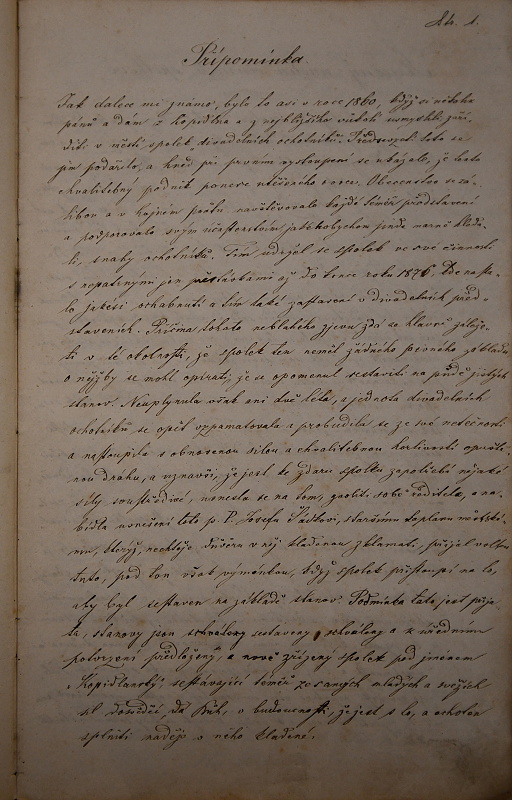 Str. 1.
Připomínka.
Jak dalece mi známo, bylo to asi v roce 1860, když si několik
pánů a dám z Kopidlna a z nejbližšího okolí usmyslili zří-
diti v městě spolek divadelních ochotníků. Předsevzetí toto se
jim podařilo, a hned při prvním vystoupení se ukázalo, že tento
chvalitebný podnik ponese utěšeného ovoce. Obecenstvo se zá-
libou a v hojném počtu navštěvovalo každé téměř představení
a podporovalo svým účastenstvím, jakéhobychom jinde marně hleda-
li, snahy ochotníků. Tím udržel se spolek ve své činnosti
s nepatrnými jen přestávkami až do konce roku 1876. Zde nasta-
lo jakési ochabnutí a tím také zastavení v divadelních před-
staveních. Příčina tohoto neblahého zjevu zdá se hlavně záleže-
ti v té okolnosti, že spolek ten neměl žádného pevného základu
o nějžby se mohl opírati, že se opomenul sestaviti na půdě jistých
stanov. Neuplynula však ani dvě léta, a jednota divadelních
ochotníků se opět vzpamatovala a probudila se ze své netečnosti
a nastoupila s obnovenou silou a chvalitebnou horlivostí opuště-
nou dráhu, a uznavši, že jest ke zdaru spolku zapotřebí nějaké
síly soustřeďivé, usnesla se na tom, zvoliti sobě ředitele, a na-
bídla usnešení toto p. P. Josefu Šádkovi, staršímu kaplanu městské-
mu, kterýž, nechtěje důvěru v něj kladenou zklamati, přijal volbu
tuto, pod tou však výmínkou, když spolek přistoupí na to,
aby byl sestaven na základě stanov. Podmínka tato jest přija-
ta, stanovy jsou schváleny sestaveny, schváleny a k úřednímu
potvrzení předloženy, a nově zřízený spolek pod jménem
Kopidlanský, sestávající téměř ze samých mladých a svěžích
sil dosvědčí, dá Bůh, v budoucnosti, že jest s to, a ochoten
splniti naděje v něho kladené.